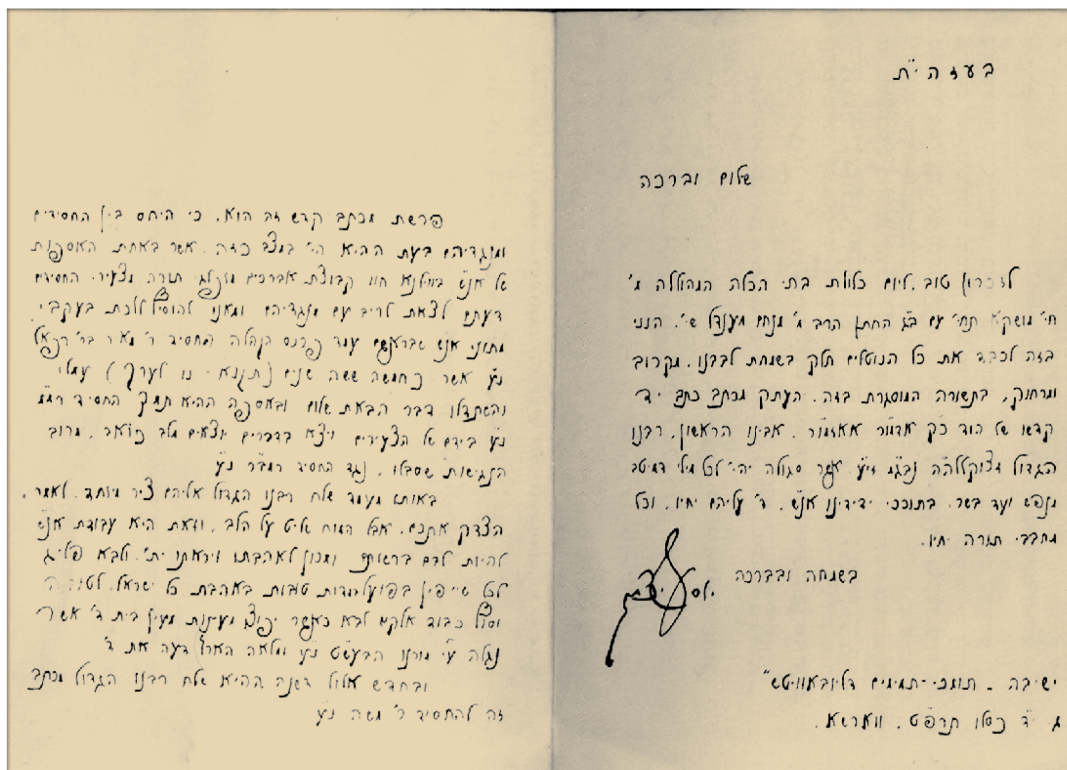 בעזה"ת
שלום וברכה
לזכרון טוב, ליום כלולת בתי הכלה המהוללה מ'
חי' מושקא תחי' עם ב"ג החתן הרב מ' מנחם מענדל שי', הנני
בזה לכבד את כל הנוטלים חלק בשמחת לבבנו, מקרוב
ומרחוק, בתשורה המוסגרת בזה, העתק מכתב כתב יד
קדשו של הוד כ"ק אדמו"ר אאזמו"ר, אבינו הראשון, רבנו
הגדול נבג"מ זי"ע, אשר סגולה יהי' לכל מילי דמיטב
מנפש ועד בשר, בתוככי ידידינו אנ"ש, ד' עליהם יחיו, וכל
מחבבי תורה יחיו.
בשמחה ובברכה
יוסף יצחק
ישיבה - תומכי-תמימים דליובאוויטש"
ג' י"ד כסלו תרפ"ט, ווארשא.
פרשת מכתב קדש זה הוא, כי היחס בין החסידים
ומנגדיהם בעת ההיא הי' במצב כזה, אשר באחת האספות
של אנ"ש בווילנא חוו קבוצת אברכים מופלגי תורה מצעירי החסידים
דעתם לצאת לריב עם מנגדיהם ומאנו להוסיף ללכת בעקבי
מתוני אנ"ש שבראשם עמד פרנס הקהלה החסיד ר' מאיר בר' רפאל
נ"ע אשר כחמשה ששה שנים (תקנ"א - נו לערך) עמלו
והשתדלו דבר הבאת שלום ובאספה ההיא תמך החסיד
נ"ע בידם של הצעירים ויצא בדברים יוצאים מלב כואב, מרוב
הנגישות שסבלו, נגד החסיד רמב"ר נ"ע
באותו מעמד שלח רבנו הגדול אליהם ציר מיוחד, לאמר,
הצדק אתכם, אבל המוח שליט על הלב, וזאת היא עבודת אנ"ש
להיות לבם ברשותם ומכון לאהבתו ויראתו ית', ולבא
לכל טובות באהבת כל ישראל,
וסוף כבוד אלקים לבא כאשר יפוצו מעינות מעין בית ד' אשר
נגלה ע"י מורנו הבעש"ט נ"ע ומלאה הארץ דעה את ד'
ובחדש אלול דשנה ההיא שלח רבנו הגדול מכתב
זה להחסיד ר' משה נ"ע